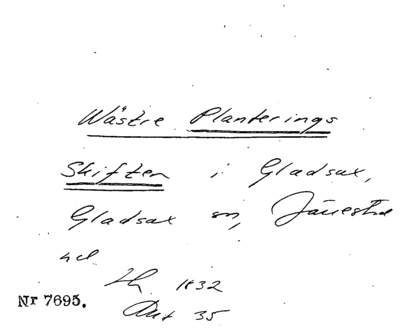 Wästre Planterings
Skiften i Gladsax,
Gladsax sn, Järrestad
hd
Lh 1832
Akt 35
Nr 7695.